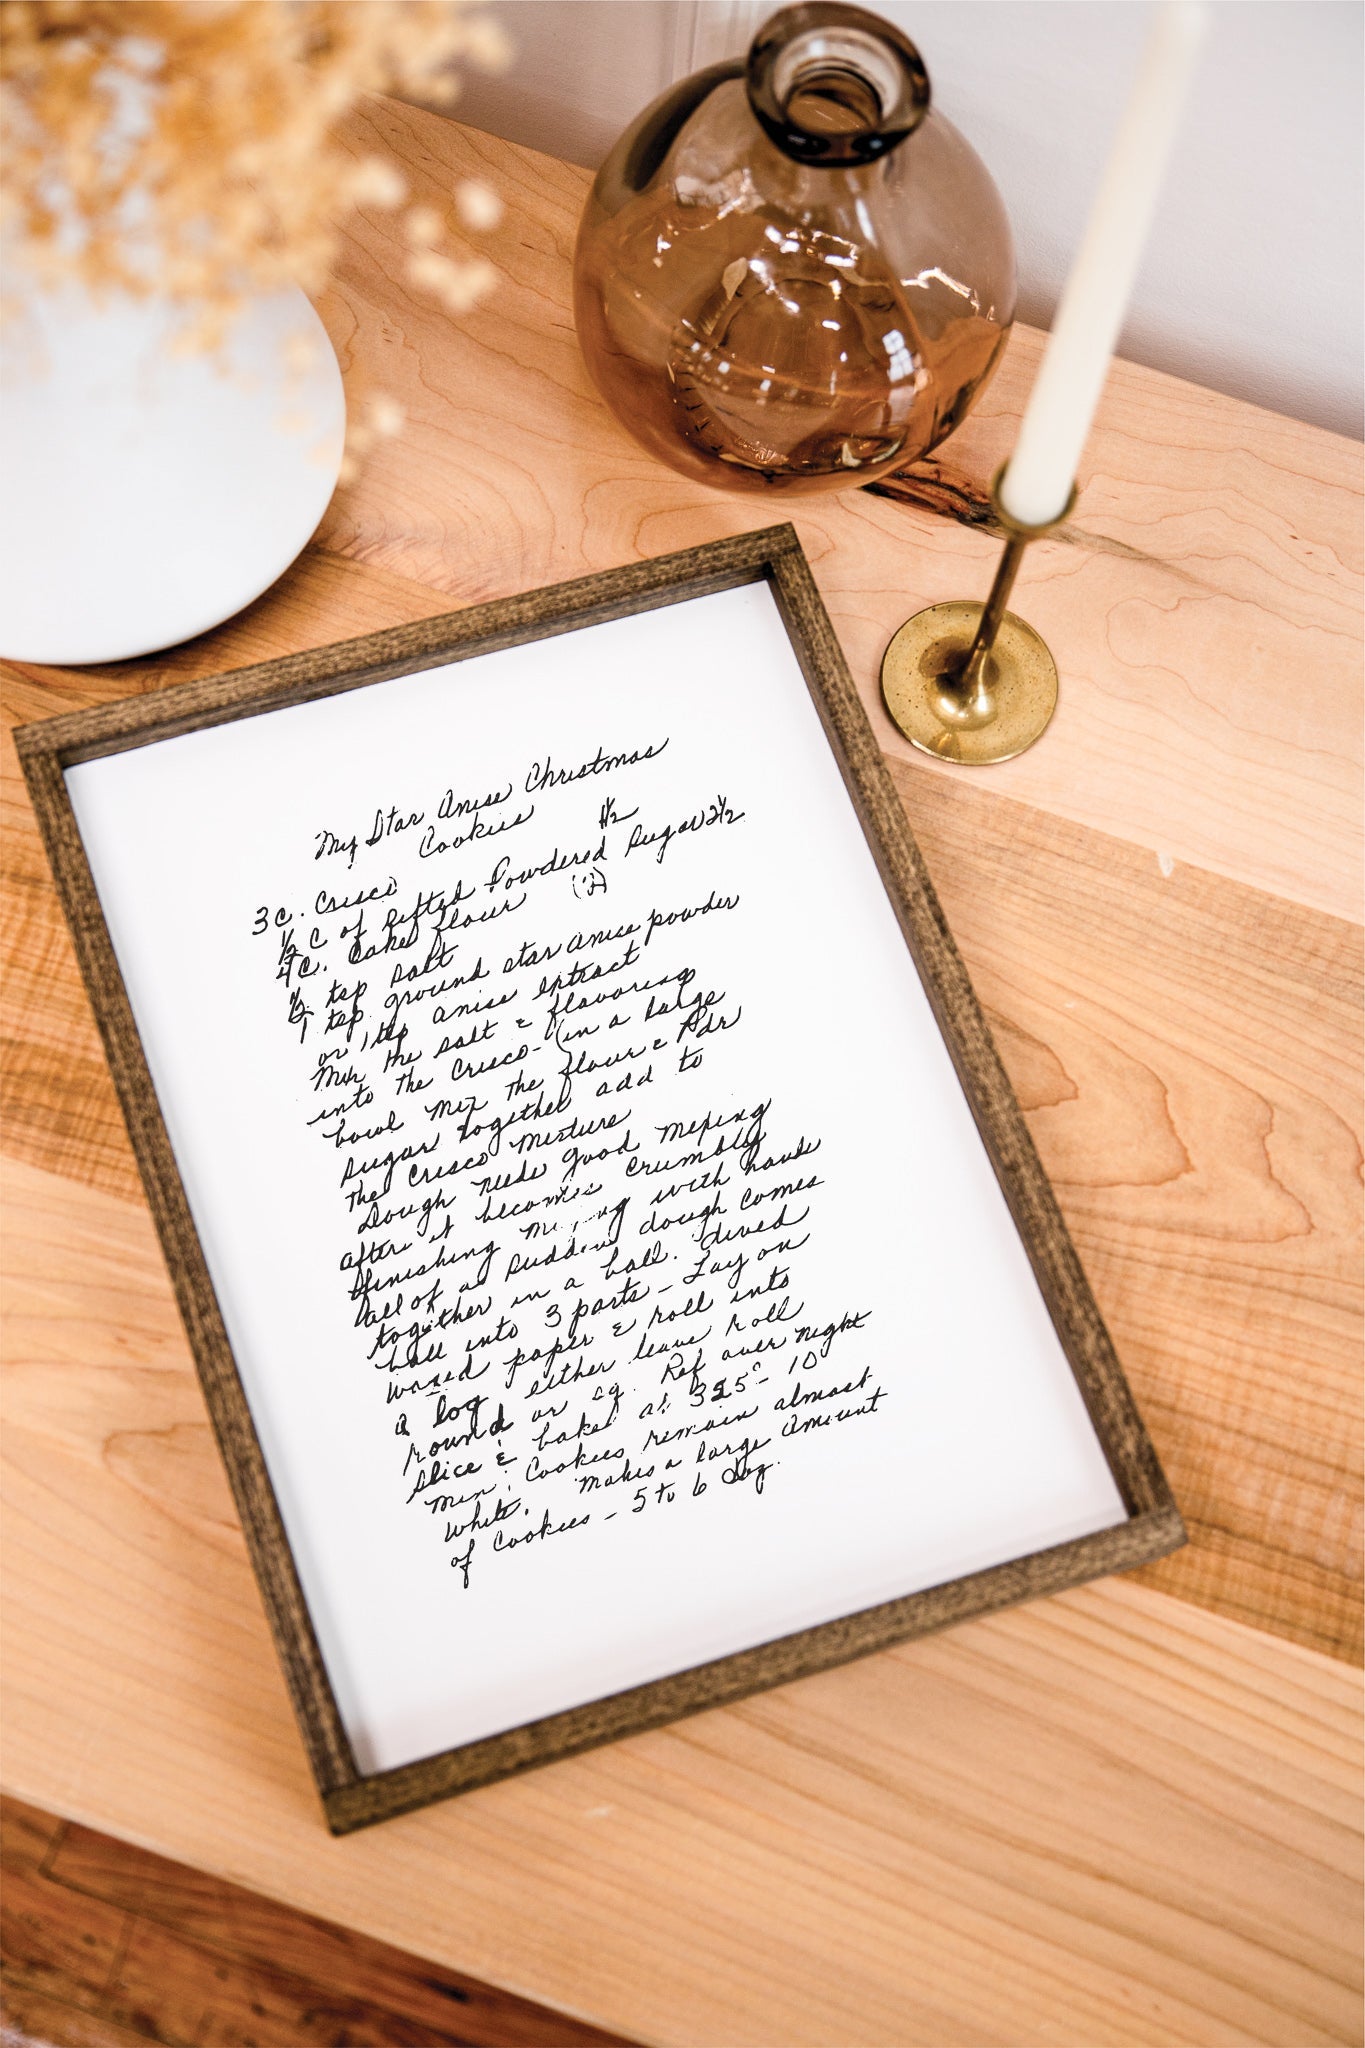 My Star Anise Christmas
Cookies 1½
3 C. Crisco
½ C of Sifted Powdered Sugar 2½
4 C. Cake flour (2)
½ tsp salt
1 tsp ground star anise powder
or 1 tsp anise extract
Mix the salt & flavoring
into the Crisco - (in a large
bowl mix the flour & Pdr
sugar together add to
the Crisco mixture
Dough needs good mixing
after it becomes crumbly
finishing mixing with hands
all of a sudden dough comes
together in a ball. Dived
ball into 3 parts - Lay on
waxed paper & roll into
a log either leave roll
round or sq. Ref over night
slice & bake at 325° - 10
min. Cookies remain almost
white. Makes a large amount
of Cookies - 5 to 6 doz.